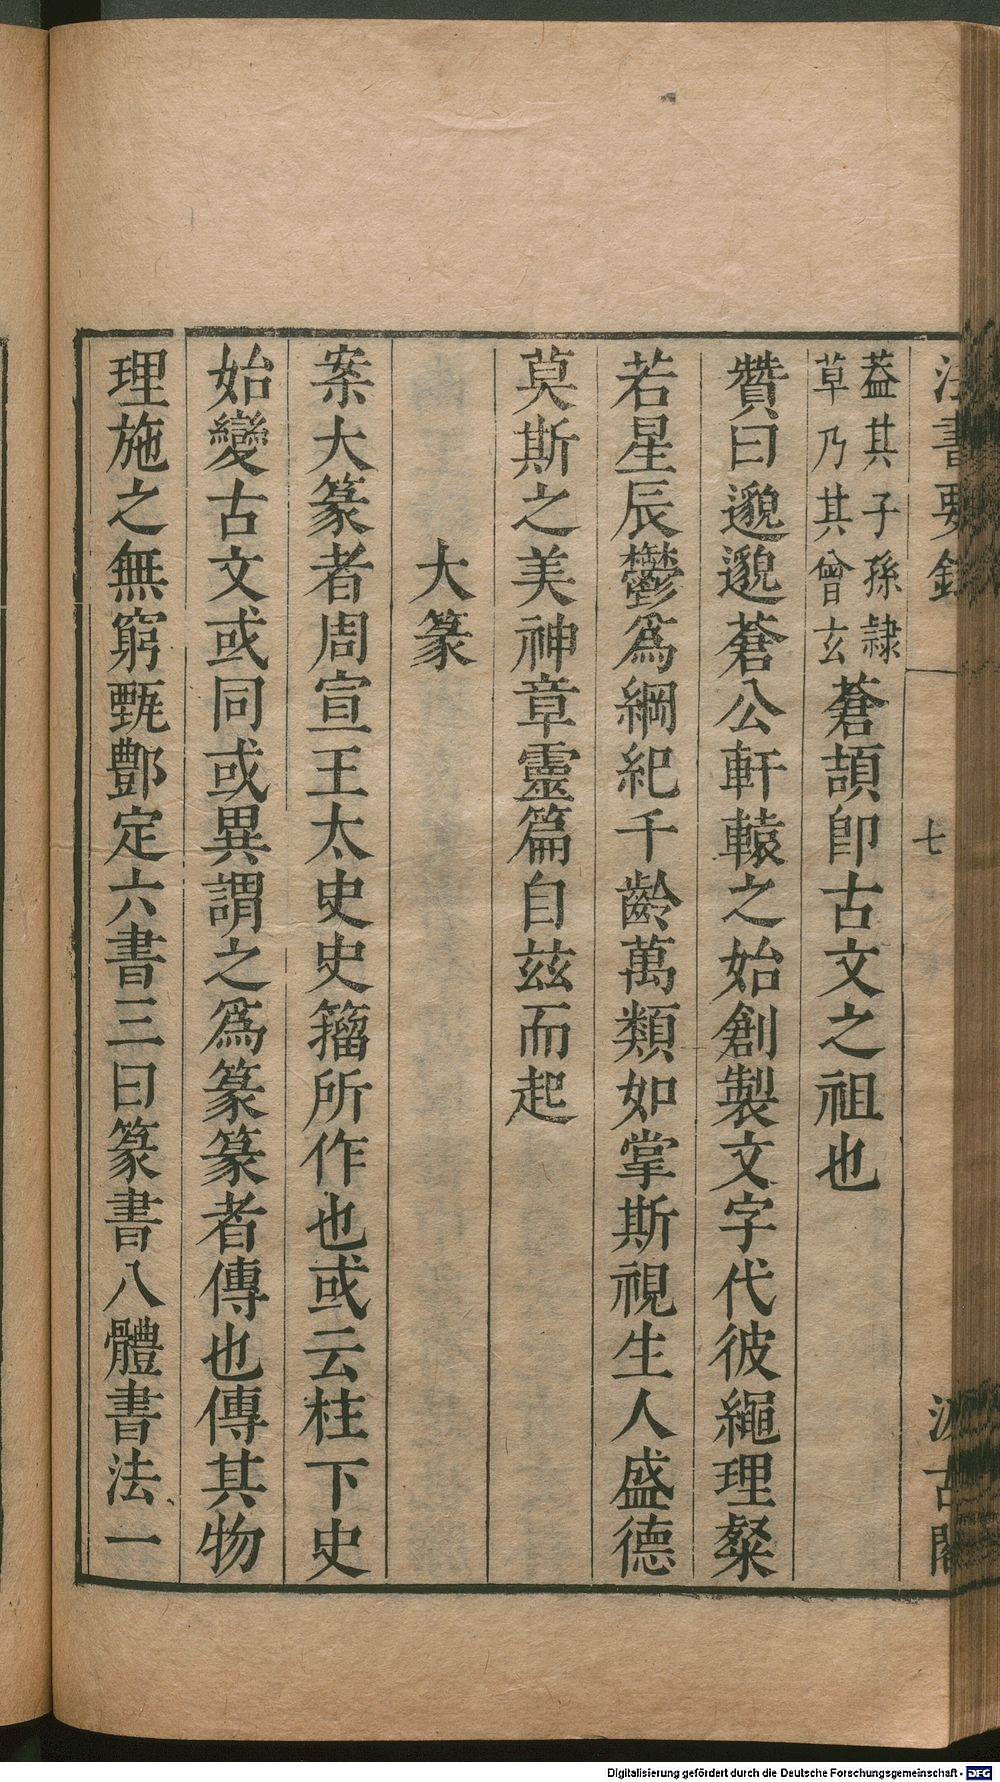 法書要錄
七
汲古閣
葢其子孫隷
草乃其曾玄
蒼頡卽古文之祖也
贊曰邈邈蒼公軒轅之始創製文字代彼繩理粲
若星辰鬱爲綱紀千齡萬類如掌斯視生人盛德
莫斯之美神章靈篇自兹而起
大篆
案大篆者周宣王太史史籀所作也或云柱下史
始變古文或同或異謂之爲篆篆者傳也傳其物
理施之無窮甄酆定六書三曰篆書八體書法一
Digitalisierung gefördert durch die Deutsche Forschungsgemeinschaft - DFG